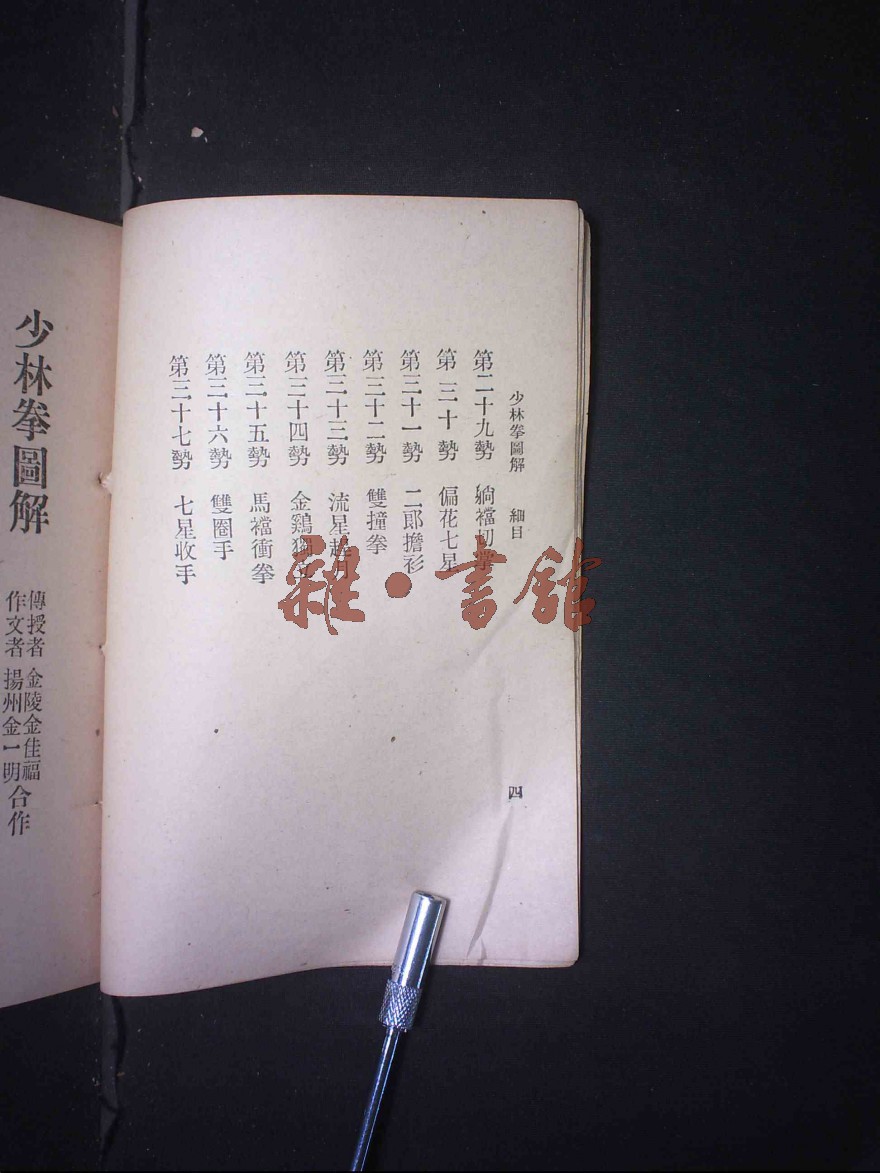 少林拳圖解 細目
第二十九勢 躺襠切掌
第三十勢 偏花七星
第三十一勢 二郎擔衫
第三十二勢 雙撞拳
第三十三勢 流星趕月
第三十四勢 金鷄獨立
第三十五勢 馬襠衝拳
第三十六勢 雙圈手
第三十七勢 七星收手
四
少林拳圖解
傳授者 金陵金佳福
作文者 揚州金一明
合作
雜·書館